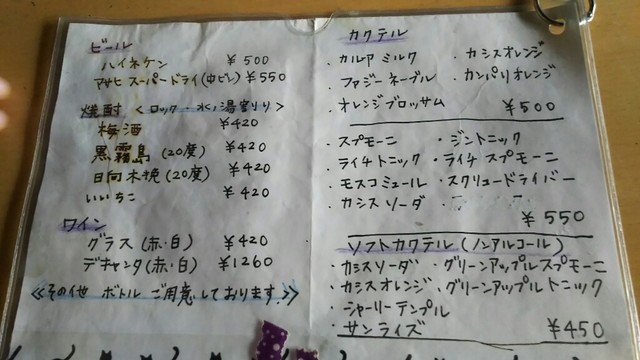 ビール
ハイネケン ¥500
アサヒ スーパードライ(中ビン) ¥550
焼酎 <ロック・水・湯割り>
梅酒 ¥420
黒霧島 (20度) ¥420
日向木挽 (20度) ¥420
いいちこ ¥420
ワイン
グラス (赤・白) ¥420
デキャンタ (赤・白) ¥1260
≪その他 ボトル ご用意しております≫
カクテル
・カルアミルク ・カシスオレンジ
・ファジーネーブル ・カンパリオレンジ
・オレンジブロッサム ¥500
・スプモーニ ・ジントニック
・ライチトニック ・ライチスプモーニ
・モスコミュール ・スクリュードライバー
・カシスソーダ
¥550
ソフトカクテル (ノンアルコール)
・カシスソーダ ・グリーンアップルスプモーニ
・カシスオレンジ ・グリーンアップルトニック
・シャーリーテンプル
・サンライズ ¥450